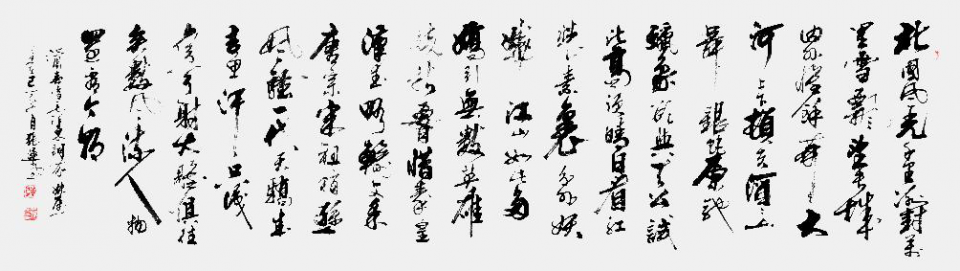 北國風光千里冰封萬
里雪飄望長城
内外惟餘莽莽大
河上下頓失滔滔山
舞銀蛇原馳
蠟象欲與天公試
比高須晴日看紅
裝素裹分外妖
嬈江山如此多
嬌引無數英雄
競折腰惜秦皇
漢武略輸文采
唐宗宋祖稍遜
風騷一代天驕成
吉思汗只識
彎弓射大雕俱往
矣數風流人物
還看今朝